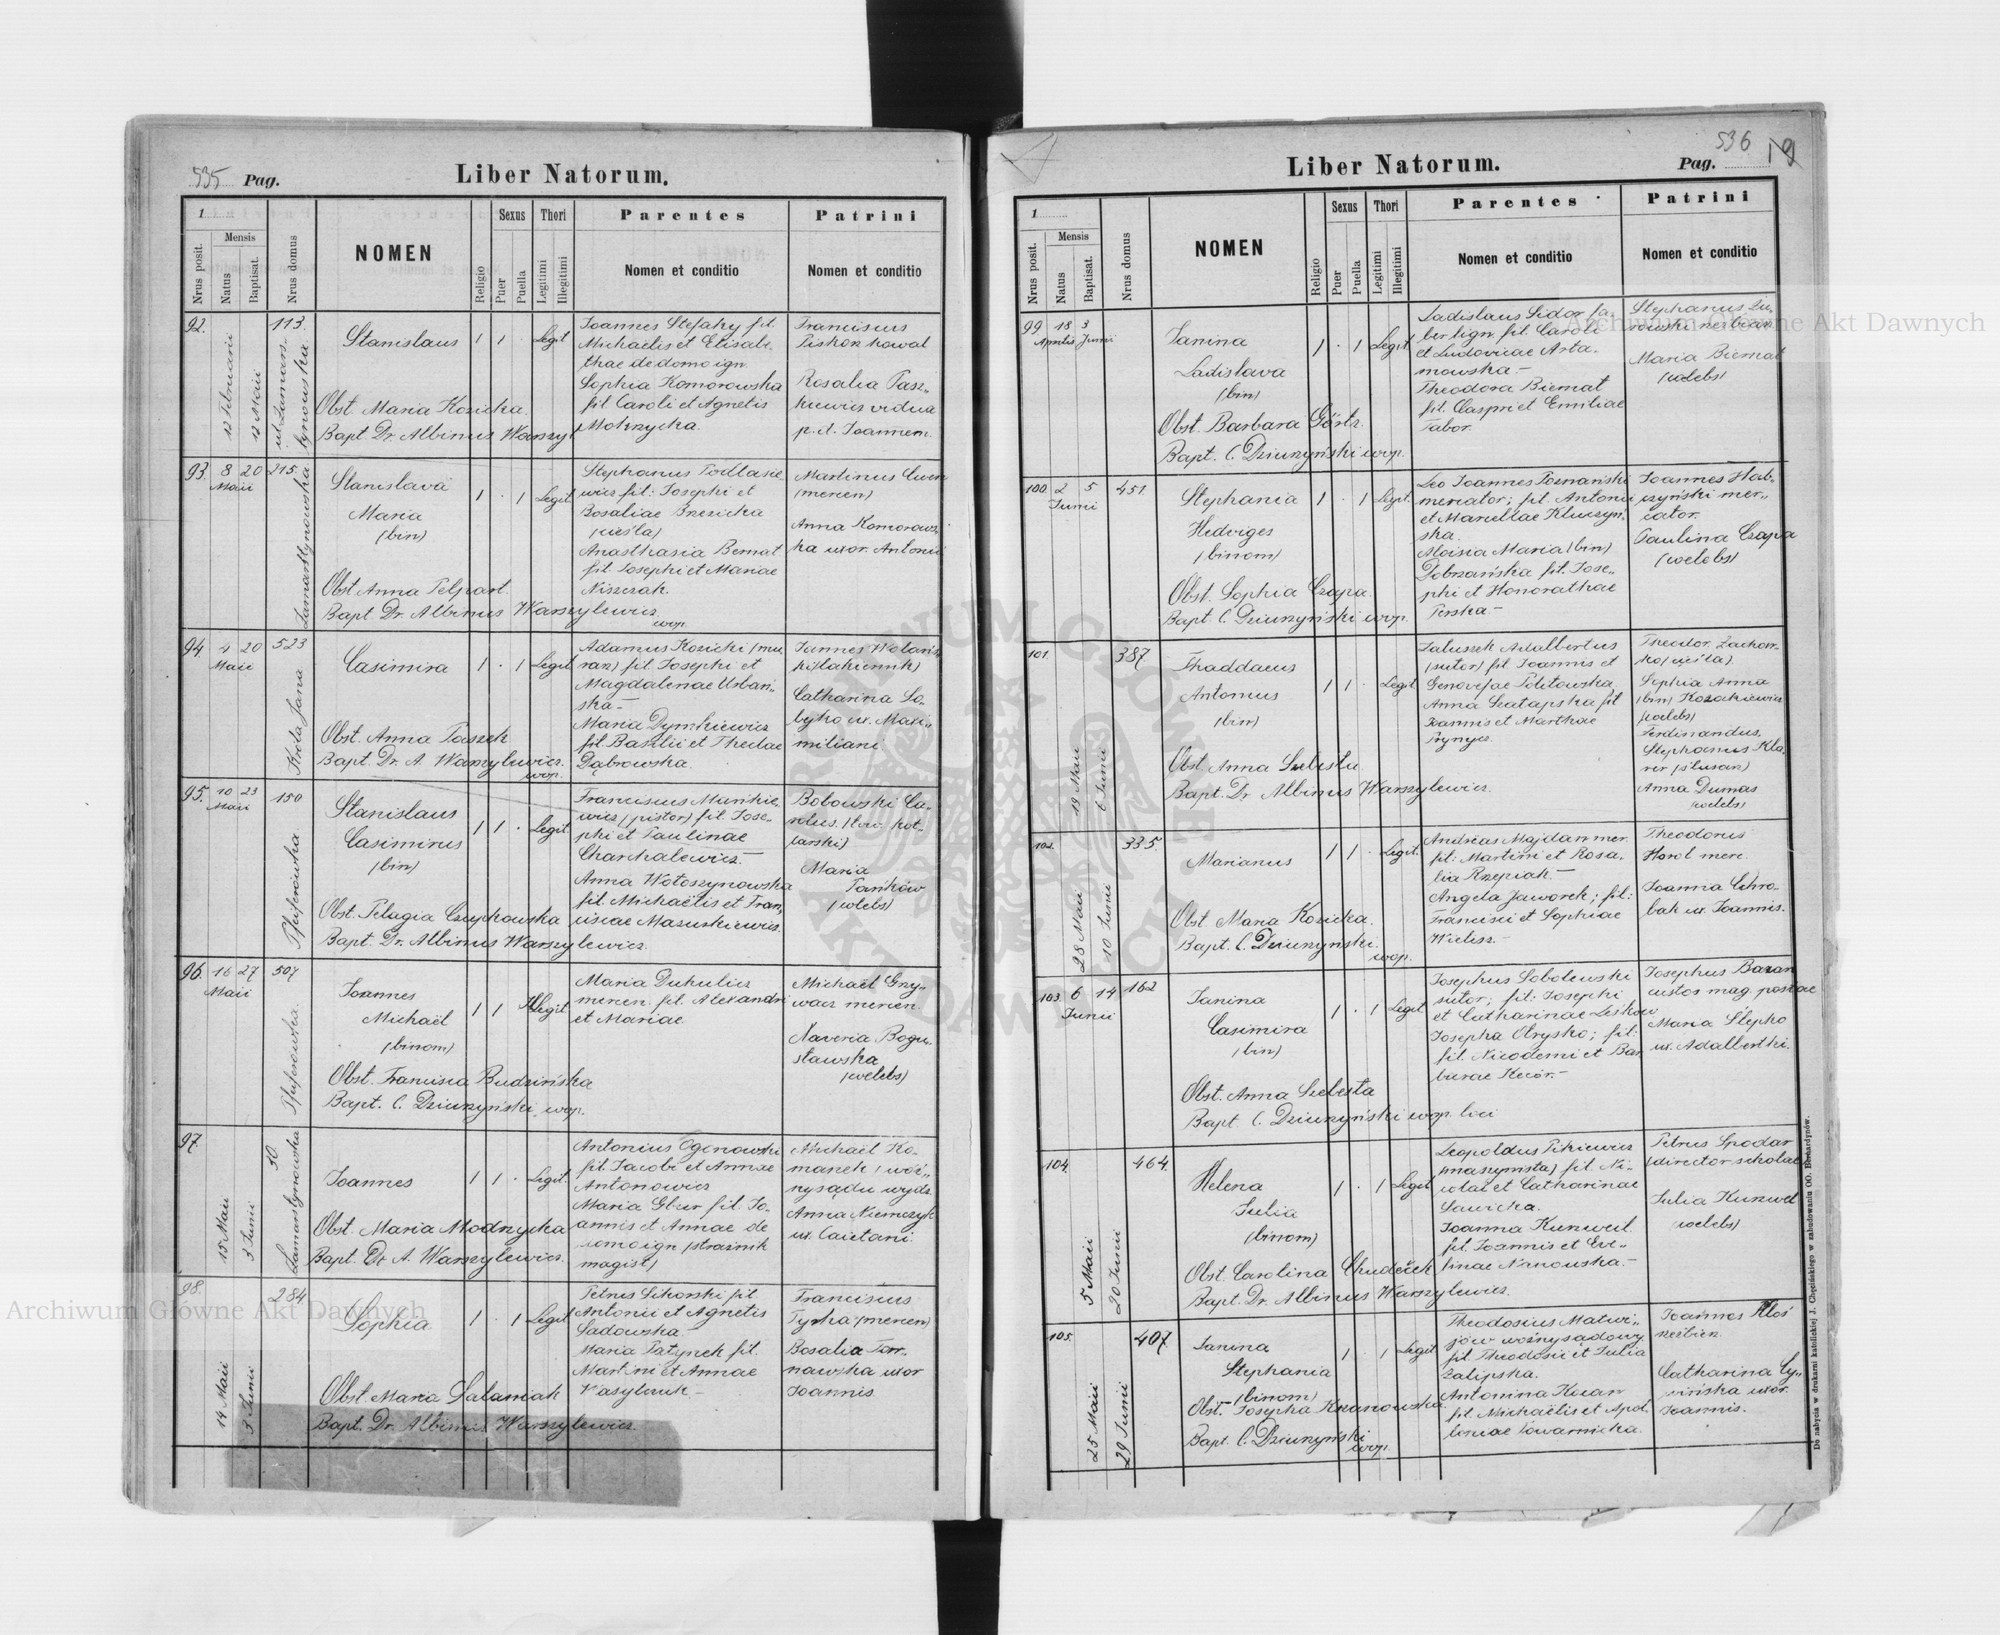 535 Pag.
Liber Natorum.
1
Nrus posit.
Mensis
Natus
Baptisat.
Nrus domus
NOMEN
Religio
Sexus
Puer
Puella
Thori
Legitimi
Illegitimi
Parentes
Nomen et conditio
Patrini
Nomen et conditio
92.
12 Februarii
12 Maii
113.
Stanislaus
1 1 · Legit
Obst. Maria Kozicka
Bapt Dr. Albinus Warszyl
Joannes Stefaky fil.
Michaelis et Elisabe-
thae de domo ign
Sophia Komorowska
fil Caroli et Agnetis
Mokrzycka.
Franciscus
Piskor kowal
Rosalia Pasz-
kiewicz vidua
p. d. Joannem.
93. 8 20
Maii
215.
Zamarstynowska
Stanislava
Maria
(bin)
1 · 1 Legit
Obst. Anna Pelpart.
Bapt Dr. Albinus Warszylewicz
wop.
Stephanus Podlasie
wicz fil: Josephi et
Rosaliae Brzezicka
(cieśla)
Anasthasia Bernat
fil. Josephi et Mariae
Niszczak.
Martinus
(mercen)
Anna Komorows-
ka uxor. Antonii
94 4 20
Maii
523
Króla Jana
Casimira
1 · 1 Legit
Obst. Anna Paszek
Bapt. Dr. A. Warszylewicz.
wop.
Adamus Kozicki (mu
rarz) fil. Josephi et
Magdalenae Urbań-
ska-
Maria Dymkiewicz
fil. Basilii et Theclae
Dąbrowska.
Joannes Wolańs
ki (lakiernik)
Catharina So-
byko ux. Maxi-
miliani
95. 10 23
Maii
150
Pfeiferówka
Stanislaus
Casimirus
(bin)
1 1 · Legit.
Obst. Pelagia Czupkowska
Bapt. Dr. Albinus Warszylewicz.
Franciscus Mankie
wicz (pistor) fil. Jose-
phi et Paulinae
Charchalewicz-
Anna Wołoszynowska
fil Michaëlis et Fran-
ciscae Mazurkiewicz.
Bobowski Ca-
rolus. (tow. kot-
larski)
Maria
Pańków
(coelebs)
96. 16 27
Maii
507
Pfeiferówka.
Joannes
Michaël
(binom)
1 1 Illegit
Obst. Francisca Budzińska
Bapt. C. Dziurzyński. wop.
Maria Dukulicz
mercen. fil. Alexandri
et Mariae.
Michaël Grzy-
wacz mercen.
Xaveria Bogu-
sławska
(coelebs)
97.
15 Maii
3 Junii
50
Zamarstynowska
Joannes
1 1 · Legit.
Obst. Maria Modrzycka
Bapt. Dr A. Warszylewicz.
Antonius Ogonowski
fil. Jacobi et Annae
Antonowicz
Maria Gbur fil. Jo-
annis et Annae de
domo ign (strażnik
magist)
Michaël Ko-
marek (woź-
ny sądu wydz.
Anna Niemczyk
ux. Caietani.
98.
14 Maii
3 Junii
284.
Sophia
1 · 1 Legit
Obst. Maria Salamak
Bapt. Dr. Albinus Warszylewicz.
Petrus Sikorski fil
Antonii et Agnetis
Sadowska-
Maria Patynek fil.
Martini et Annae
Wasylczuk-
Franciscus
Tyrka (mercen)
Rosalia Tar-
nawska uxor
Joannis.
Archiwum Główne Akt Dawnych
536
Pag. 19
Liber Natorum.
1
Nrus posit.
Mensis
Natus
Baptisat.
Nrus domus
NOMEN
Religio
Sexus
Puer
Puella
Thori
Legitimi
Illegitimi
Parentes
Nomen et conditio
Patrini
Nomen et conditio
99 18 3
Aprilis Junii
Janina
Ladislava
(bin)
1 · 1 Legit
Obst. Barbara Görtz
Bapt. C. Dziurzyński wop.
Ladislaus Sidor fa-
ber lign. fil. Caroli
et Ludovicae Arta-
mowska-
Theodora Biernat
fil. Caspri et Emiliae
Tabor.
Stephanus
rowski rzeźbiarz
Maria Biernat
(coelebs)
Archiwum Główne Akt Dawnych
100. 2 5
Junii
451
Stephania
Hedviges
(binom)
1 · 1 Legit.
Obst. Sophia Czapa.
Bapt. C. Dziurzyński wop.
Leo Joannes Poznański
mercator; fil. Antonii
et Marcellae Kluczyń-
ska.
Aloisia Maria (bin)
Dobrzańska fil. Jose-
phi et Honorathae
Perska.-
Joannes Hab-
czyński mer-
cator.
Paulina Czapa
(coelebs)
101.
19 Maii
6 Junii
387
Thaddaeus
Antonius
(bin)
1 1 · Legit
Obst. Anna Szelesta
Bapt. Dr Albinus Warszylewicz.
Jaluszek Adalbertus
(sutor) fil. Joannis et
Genovefae Politowska
Anna Szatapska fil
Joannis et Marthae
Prynycz.
Theodor. Zachar-
ko (cieśla).
Sophia Anna
(bin) Kozackiewicz
(coelebs)
Ferdinandus,
Stephanus Kla-
rer (ślusarz)
Anna Dumas
(coelebs)
102.
28 Maii
10 Junii
335.
Marianus
1 1 · Legit.
Obst. Maria Kozicka.
Bapt. C. Dziurzyński.
wop.
Andreas Majdan mer.
fil: Martini et Rosa-
lia Rzepiak.-
Angela Jaworek; fil:
Francisci et Sophiae
Wielisz-
Theodorus
Horol merc.
Joanna Chro-
bak ux. Joannis.
103. 6 14
Junii
162
Janina
Casimira
(bin)
1 · 1 Legit
Obst. Anna Szelesta
Bapt. C. Dziurzyński wop. loci
Josephus Sobolewski
sutor; fil: Josephi
et Catharinae Leśków
Josepha Obrysko; fil:
fil. Nicodemi et Bar
barae Kicór.-
Josephus Baran
custos mag. postae
Maria Stepko
ux. Adalberthi.
104.
5 Maii
20 Junii
464.
Helena
Julia
(binom)
1 · 1 Legit
Obst. Carolina Chudečzek
Bapt. Dr. Albinus Warszylewicz.
Leopoldus Pikiewicz
(maszynista) fil. Ni-
colai et Catharinae
Sawicka.
Joanna Kunweil
fil. Joannis et Eve-
linae Nanowska.-
Petrus Spodar
(director scholae
Julia Kunweil
(coelebs)
105.
25 Maii
29 Junii
407.
Janina
Stephania
(binom)
1 · 1 Legit
Obst. Josepha Krzanowska.
Bapt. C. Dziurzyński
wop.
Theodosius Matwi-
jów woźny sądowy
fil. Theodosii et Julia
Zalipska.
Antonina Kocan
fil. Michaëlis et Apol-
loniae Towarnicka.
Joannes Kłoś
rzeźbiarz.
Catharina Cy-
wińska uxor.
Joannis.
Do nabycia w drukarni katolickiej J. Chęcińskiego w zabudowaniu OO. Bernardynów.
ARCHIWUM GŁÓWNE AKT DAWNYCH